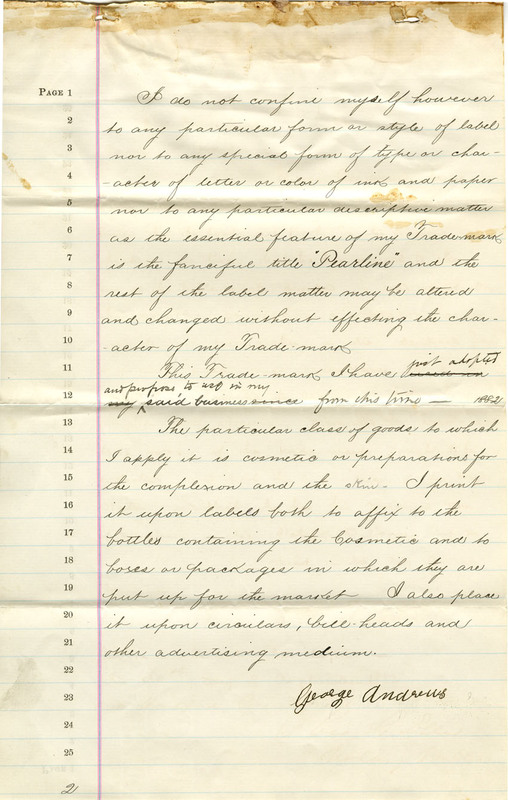 PAGE 1
I do not confine myself however
2
to any particular form or style of label
3
nor to any special form of type or char-
4
-acter of letter or color of ink and paper
5
nor to any particular descriptive matter
6
as the essential feature of my Trade-mark
7
is the fanciful title "Pearline" and the
8
rest of the label matter may be altered
9
and changed without effecting the char-
10
-acter of my Trade-mark
11
This Trade-mark I have used in just adopted
and propose to use in my
12
my said business since from this time — 1882
13
The particular class of goods to which
14
I apply it is cosmetic or preparations for
15
the complexion and the skin. I print
16
it upon labels both to affix to the
17
bottles containing the Cosmetic and to
18
boxes or packages in which they are
19
put up for the market I also place
20
it upon circulars, bill-heads and
21
other advertising medium.
22
23
George Andrews
24
25
2